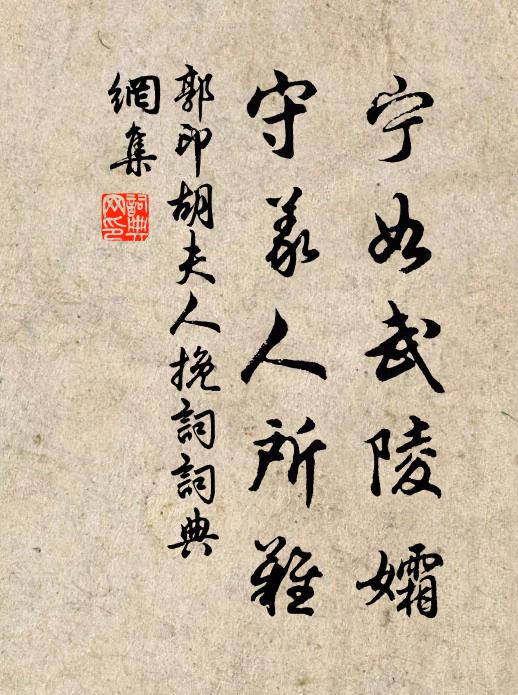 宁如武陵孀
守义人所难
郭印胡夫人挽詞詞典
網集
詞典網印